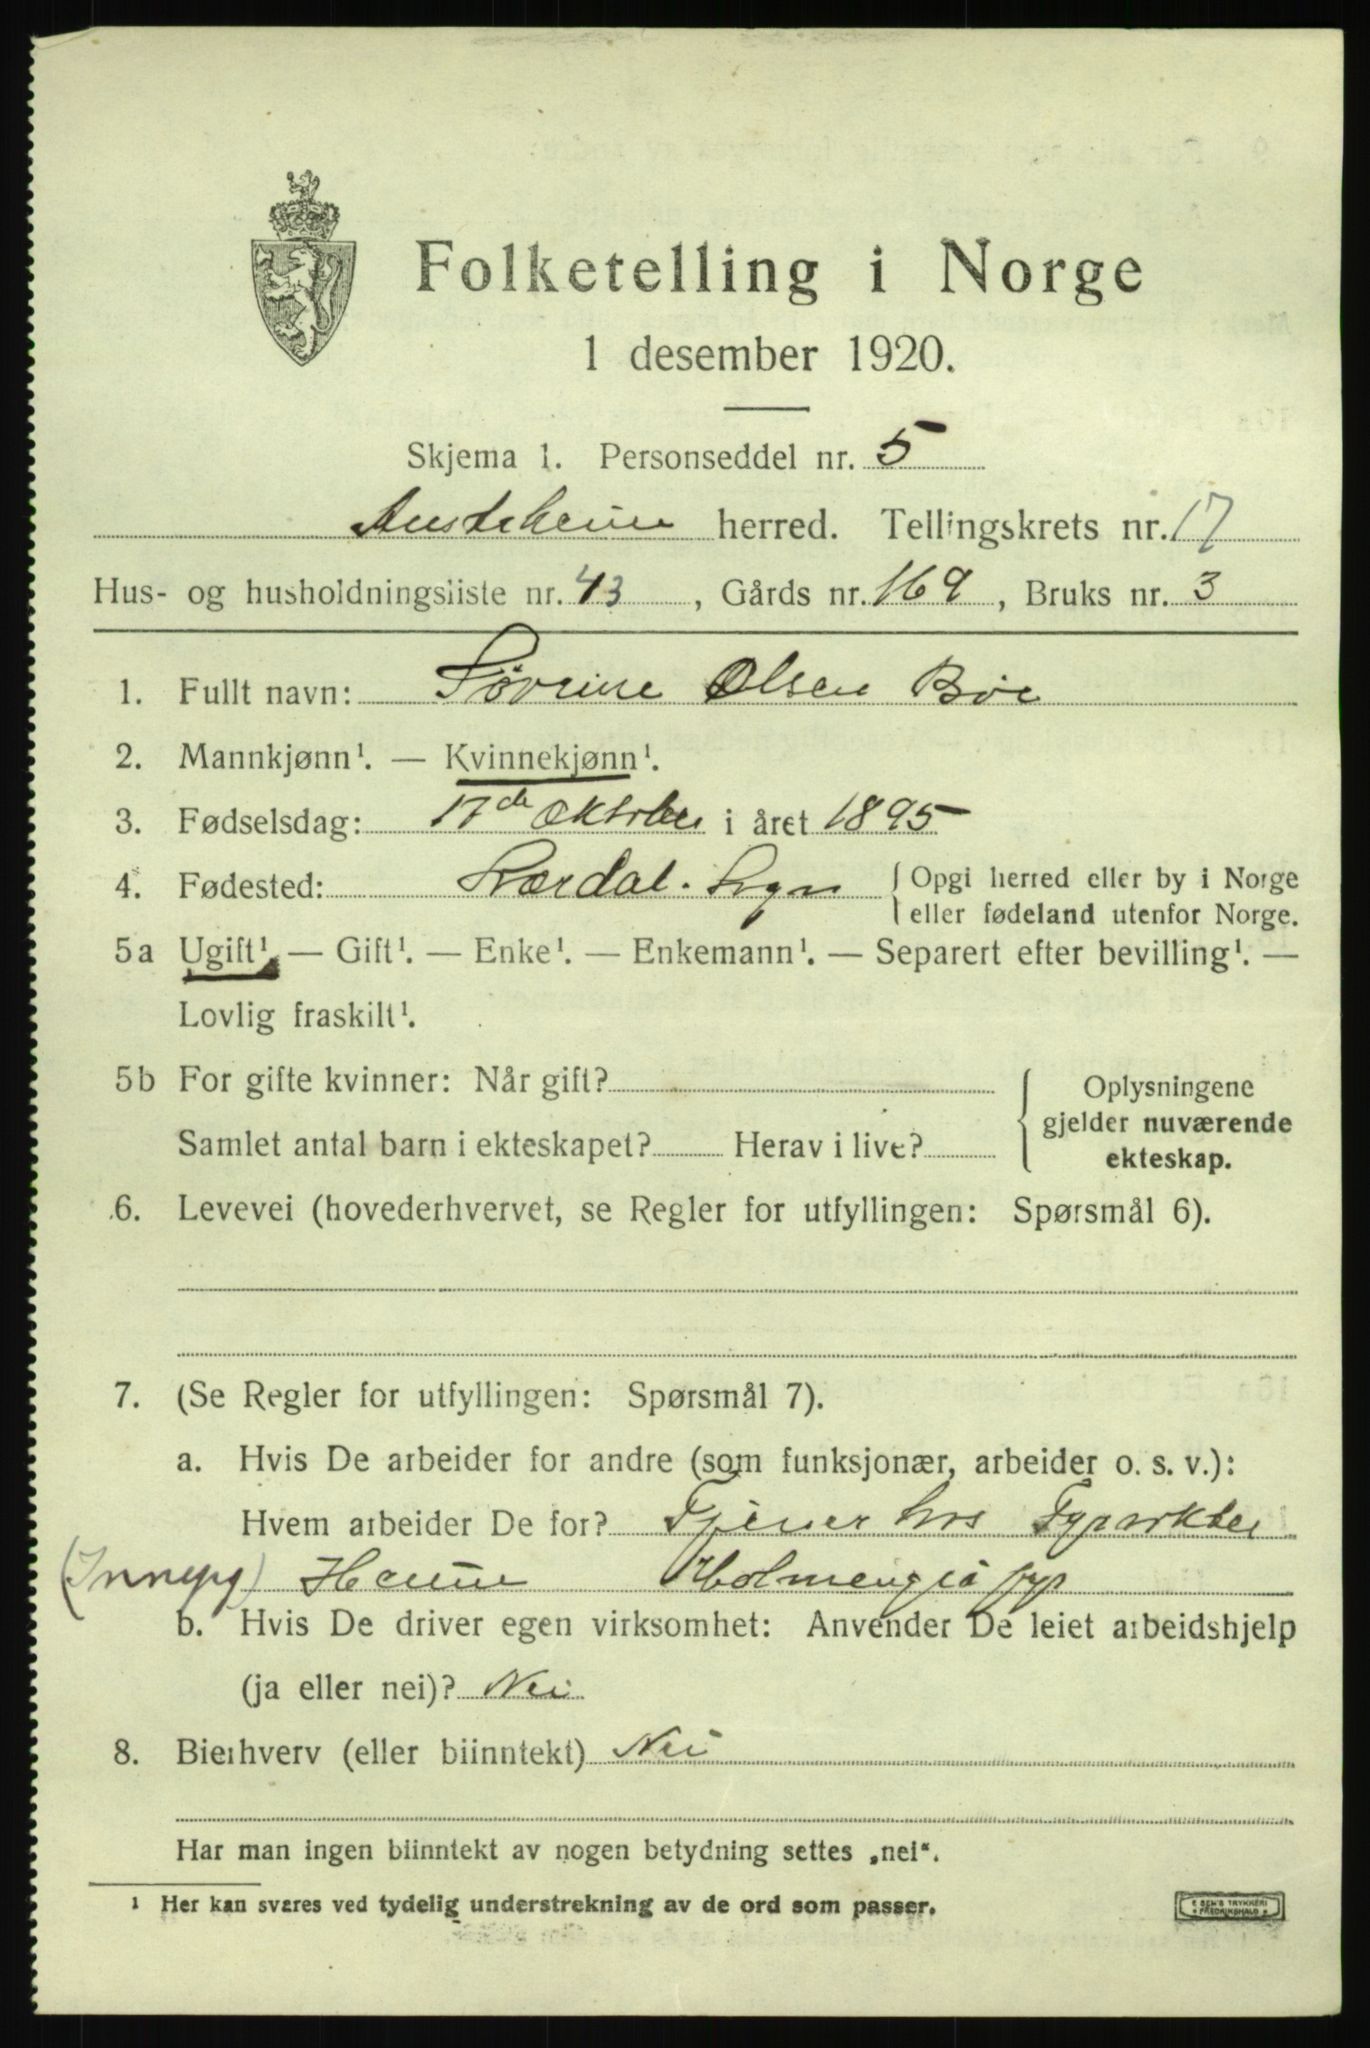 Folketelling i Norge
1 desember 1920.
Skjema 1. Personseddel nr. 5
Austrheim herred. Tellingskrets nr. 17
Hus- og husholdningsliste nr. 43, Gårds nr. 169, Bruks nr. 3
1. Fullt navn: Søvrine Olsen Böe
2. Mannkjønn¹. — Kvinnekjønn¹.
3. Fødselsdag: 17de Oktober i året 1895
4. Fødested: Lærdal. Sogn { Opgi herred eller by i Norge
eller fødeland utenfor Norge.
5a Ugift¹. — Gift¹. — Enke¹. — Enkemann¹. — Separert efter bevilling¹. —
Lovlig fraskilt¹.
5b For gifte kvinner: Når gift? { Oplysningene
gjelder nuværende
Samlet antal barn i ekteskapet? Herav i live?
ekteskap.
6. Levevei (hovederhvervet, se Regler for utfyllingen: Spørsmål 6).
7. (Se Regler for utfyllingen: Spørsmål 7).
a. Hvis De arbeider for andre (som funksjonær, arbeider o. s. v.):
Hvem arbeider De for? Tjener hos Fyrvokter
Holmengrå fyr
b. Hvis De driver egen virksomhet: Anvender De leiet arbeidshjelp
(ja eller nei)? Nei
8. Bierhverv (eller biinntekt) Nei
Har man ingen biinntekt av nogen betydning settes „nei“.
¹ Her kan svares ved tydelig understrekning av de ord som passer.
SEM'S TRYKKERI
FREDRIKSHALD